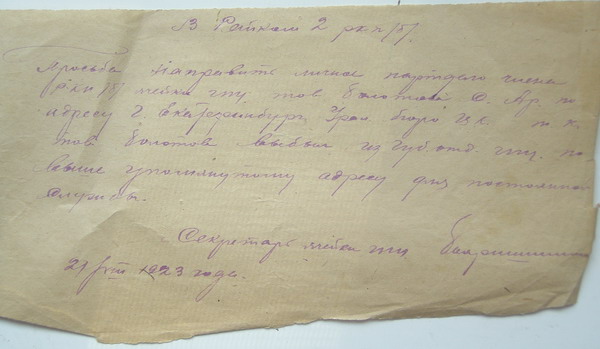 В Райком 2 ркп(б)
Просьба направить личное партдело члена
(Р.К.П (б) ячейки гпу тов Болотова Ф. Ар. по
адресу г. Екатеринбург Урал Бюро Цк. т. к.
тов Болотов выбыл из губ. отд. гпу. по
выше упомянутому адресу для постоянной
службы.
Секретарь ячейки гпу
21/VIII 1923 года.